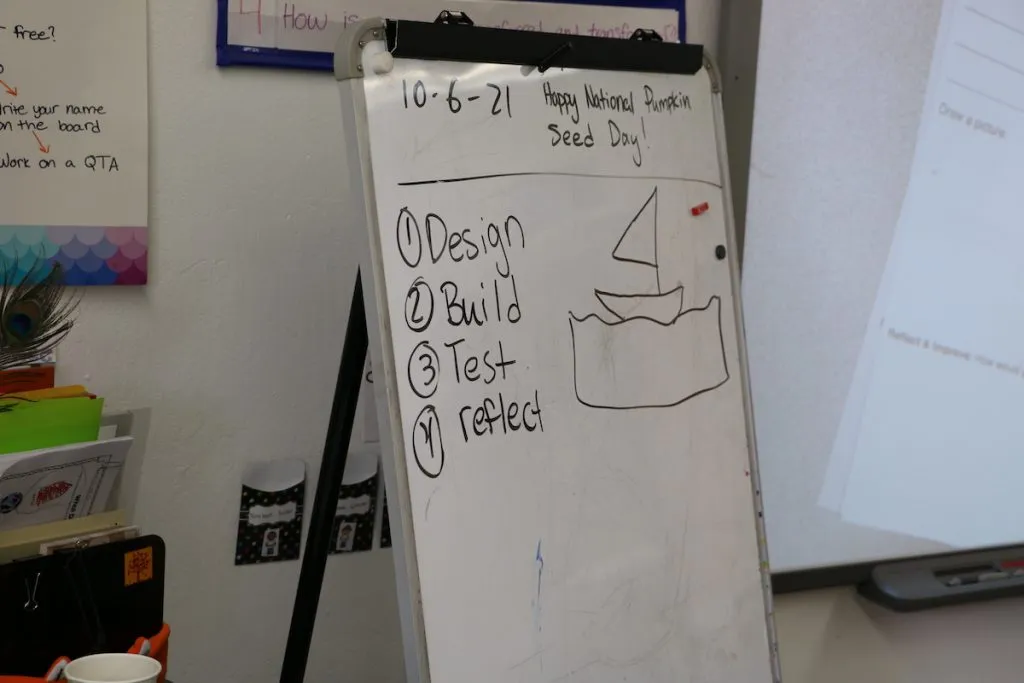 free?
write your name
on the board
Work on a QTA
4 How is
10-6-21
Happy National Pumpkin
Seed Day!
1 Design
2 Build
3 Test
4 reflect
Draw a picture
Reflect & Improve: